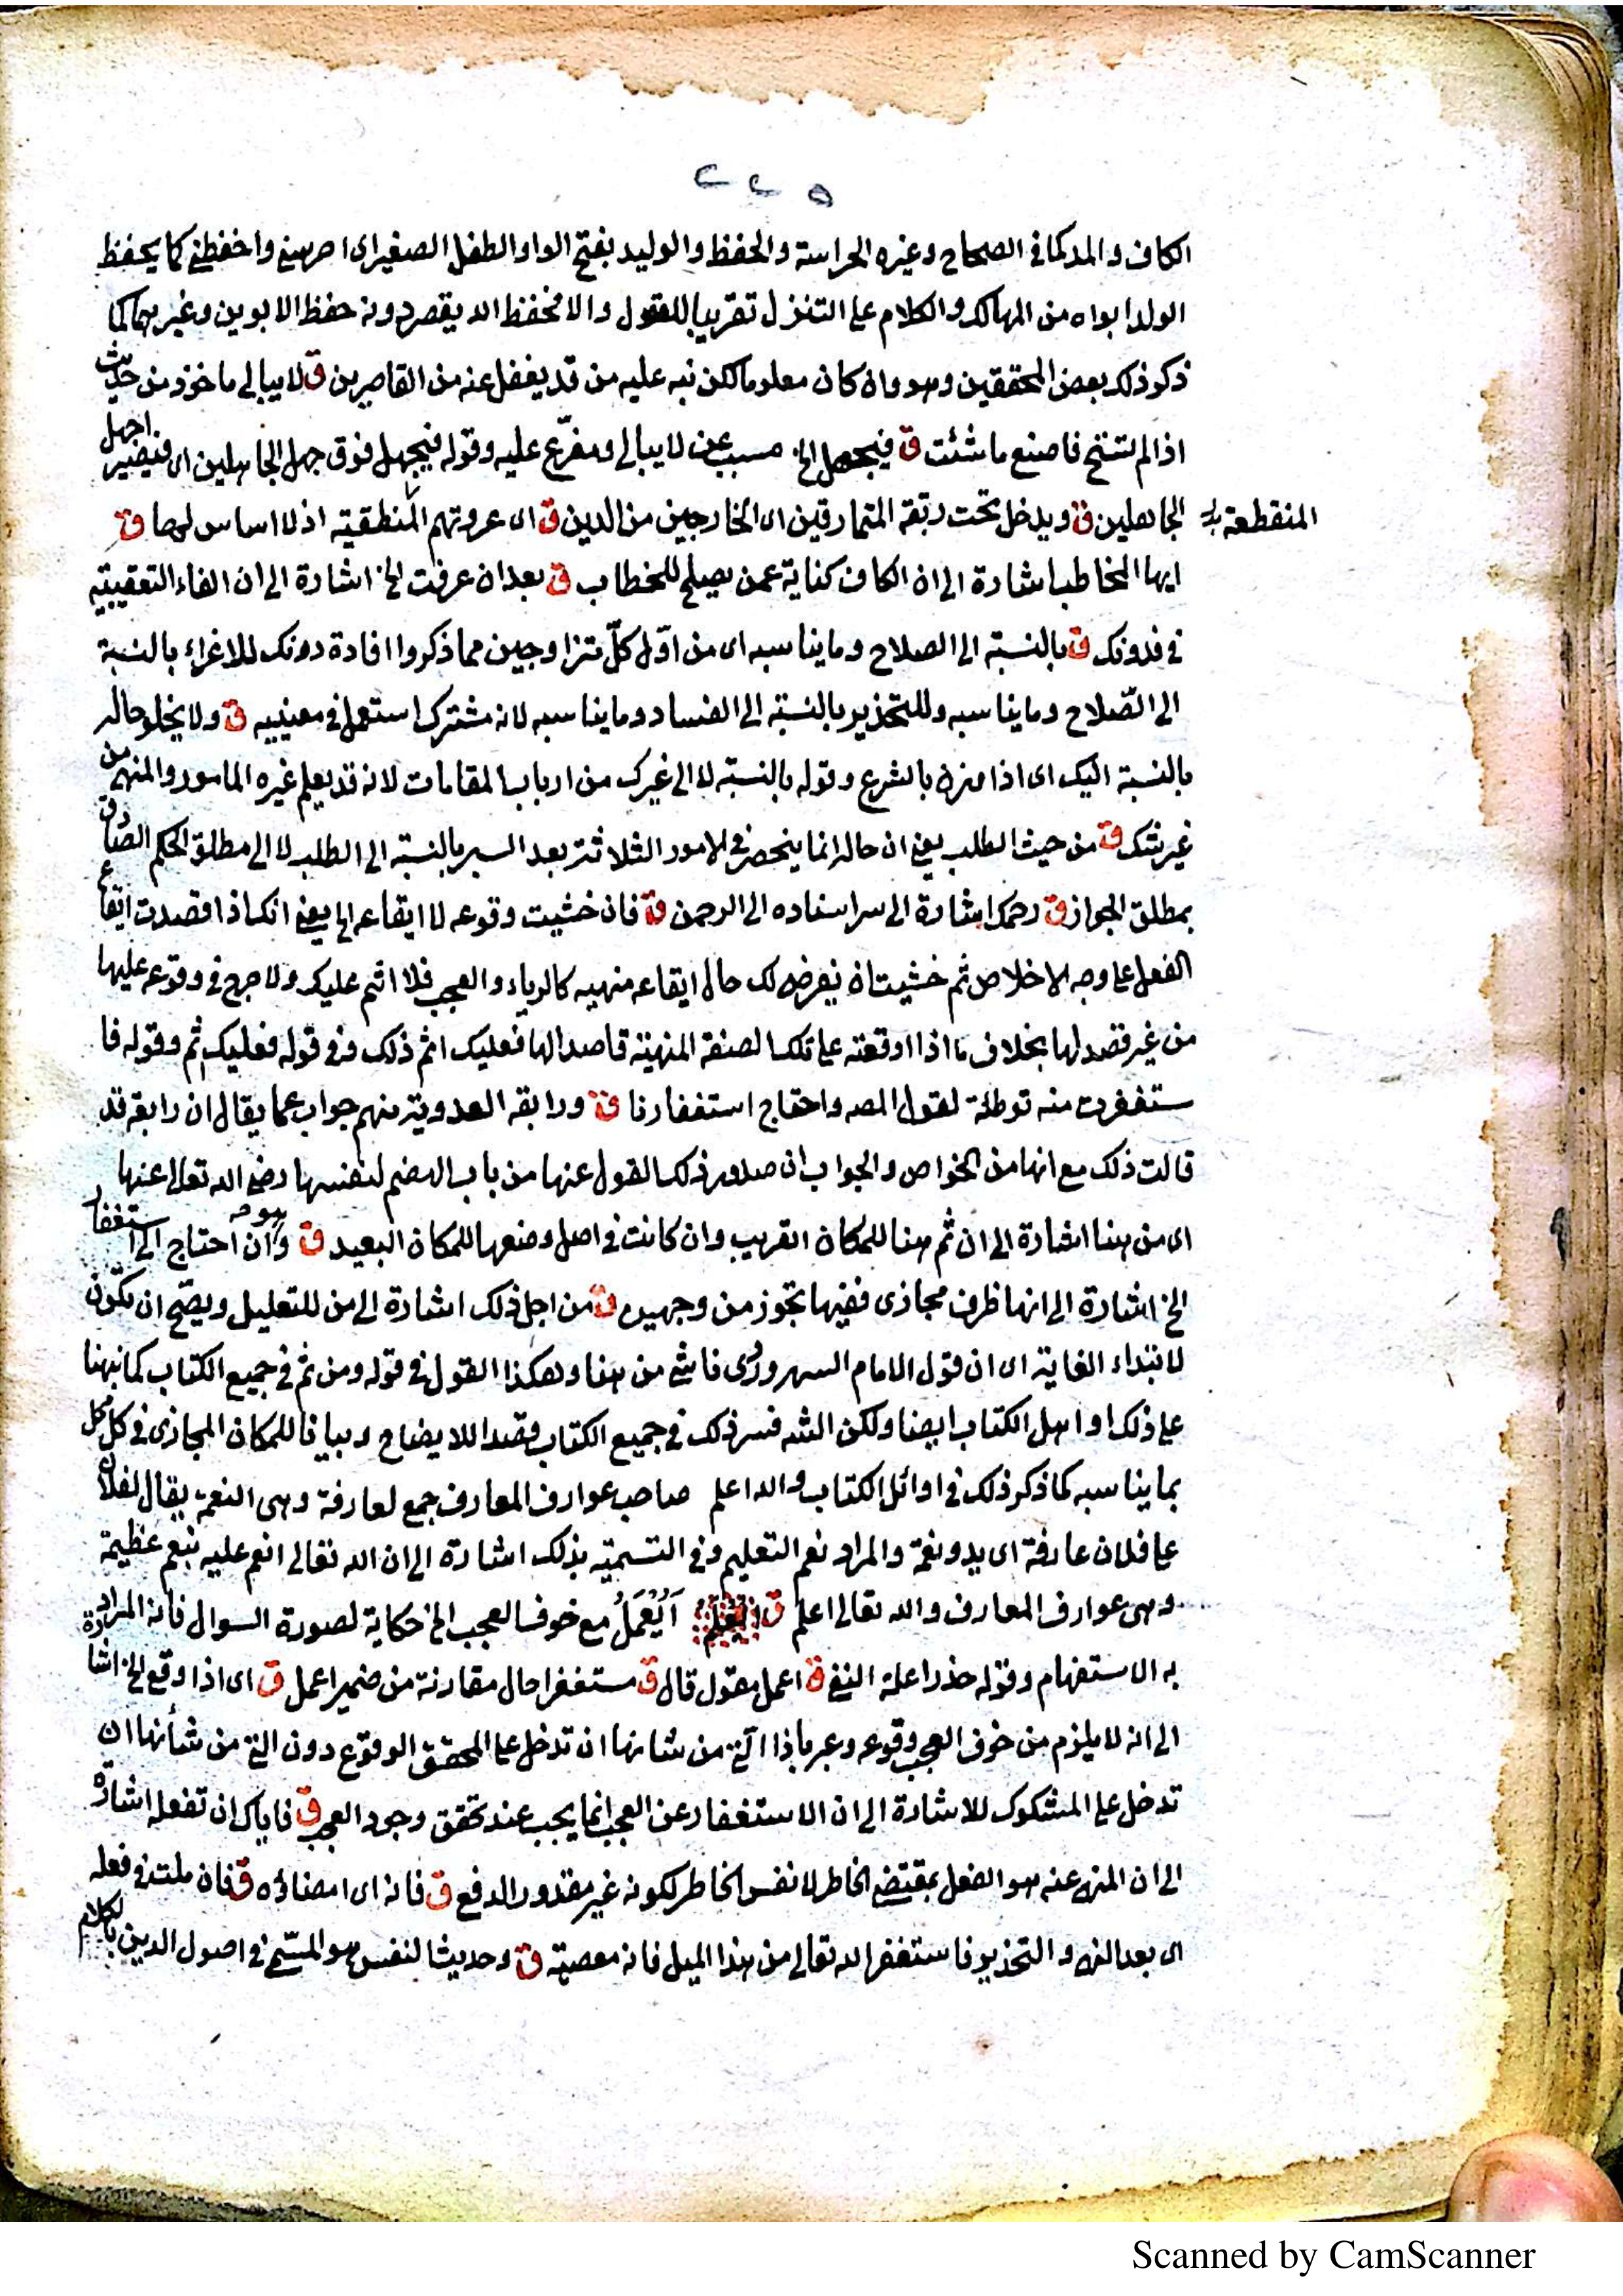 ٢٢٥
الكاف والمد كما في الصحاح وغيره الحراسة والحفظ والوليد بفتح الواو الطفل الصغير اى احرسني واحفظني كما يحفظ
الولد ابواه من المهالك والكلام على التنزل تقريبا للعقول والا فحفظ الله يقصر دونه حفظ الابوين وغيرهما كما
ذكر ذلك بعض المحققين وهو وان كان معلوما لكن نبه عليه من قد يغفل عنه من القاصرين ق لا يبالى ماخوذ من حديث
اذا لم تستح فاصنع ما شئت ق فيجهل الخ مسبب عن لا يبالى ومفرّع عليه وقوله فيجهل فوق جهل الجاهلين اى فيصير اجهل
الجاهلين ق ويدخل تحت ربقة المتمارقين اى الخارجين من الدين ق اى عروتهم المنطقية اذ لا اساس لها ق
المنقطعة
ايها المخاطب اشارة الى ان الكاف كناية عمن يصلح للخطاب ق بعد ان عرفت الخ اشارة الى ان الفاء التعقيبية
في فدونك ق بالنسبة الى الصلاح وما يناسبه اى من اوّل كلّ متزاوجين مما ذكروا افادة دونك للاغراء بالنسبة
الى الصّلاح وما يناسبه وللتحذير بالنسبة الى الفساد وما يناسبه لانه مشترك استعمل في معنييه ق ولا يخلو حاله
بالنسبة اليك اى اذا وزن بالشرع وقوله بالنسبة لا الى غيرك من ارباب المقامات لانه قد يعلم غيره المامور والمنهى من
غير شك ق من حيث الطلب يعني ان حاله انما ينحصر في الامور الثلاثة بعد السبر بالنسبة الى الطلب لا الى مطلق الحكم الصادق
بمطلق الجواز ق رحمك اشارة الى سر اسناده الى الرحمن ق فان خشيت وقوعه لا ايقاعه الخ يعني انك اذا قصدت ايقاع
الفعل على وجه الاخلاص ثم خشيت ان يعرض لك حال ايقاعه منهيه كالرياء والعجب فلا اثم عليك ولا حرج في وقوعه عليها
من غير قصد لها بخلاف ما اذا اوقعته على تلك الصفة المنهية قاصدا لها فعليك اثم ذلك وفى قوله فعليك اثم وقوله فا
ستغفرت منه توطئة لقول المصه واحتياج استغفارنا ق ورابعة العدوية منهم جواب عما يقال ان رابعة قد
قالت ذلك مع انها من الخواص والجواب ان صدور ذلك القول عنها من باب الهضم لنفسها رضى الله تعالى عنها
اى من هنا اشارة الى ان ثم هنا للمكان القريب وان كانت في اصل وضعها للمكان البعيد ق وان احتاج الى استغفار
الخ اشارة الى انها ظرف مجازى ففيها تجوز من وجهين ق من اجل ذلك اشارة الى من للتعليل ويصّح ان تكون
لابتداء الغاية اى ان قول الامام السهروردى ناشى من هنا وهكذا القول في قوله ومن ثم في جميع الكتاب كما نبهنا
على ذلك اوايل الكتاب ايضا ولكن الشه فسر ذلك في جميع الكتاب قصدا للايضاح وبيانا للمكان المجازى في كل محل
بما يناسبه كما ذكر ذلك في اوائل الكتاب والله اعلم صاحب عوارف المعارف جمع لعارفة وهى النعمة يقال لفلان
على فلان عارفة اى يد ونعمة والمراد نعم التعليم وفى التسمية بذلك اشارة الى ان الله تعالى انعم عليه بنعم عظيمة
وهى عوارف المعارف والله تعالى اعلم ق اَيُعْمَلُ مع خوف العجب الخ حكاية لصورة السوال فانه المراد
به الاستفهام وقوله حذرا علة النفي ق اعمل مقول قال ق مستغفرا حال مقارنة من ضمير اعمل ق اى اذا وقع الخ اشارة
الى انه لا يلزم من خوف العجب وقوعه وعبر باذا التي من شانها ان تدخل على المحقق الوقوع دون التي من شأنها ان
تدخل على المشكوك للاشارة الى ان الاستغفار عن العجب انما يجب عند تحقق وجود العجب ق فاياك ان تفعل اشارة
الى ان المنهى عنه هو الفعل بمقتضى الخاطر لا نفس الخاطر لكونه غير مقدور الدفع ق فانه اى امضاؤه ق فان ملت فى فعله
اى بعد النهى والتحذير فاستغفر الله تعالى من هذا الميل فانه معصية ق وحديث النفس هو المسمّى في اصول الدين بالكلام
Scanned by CamScanner